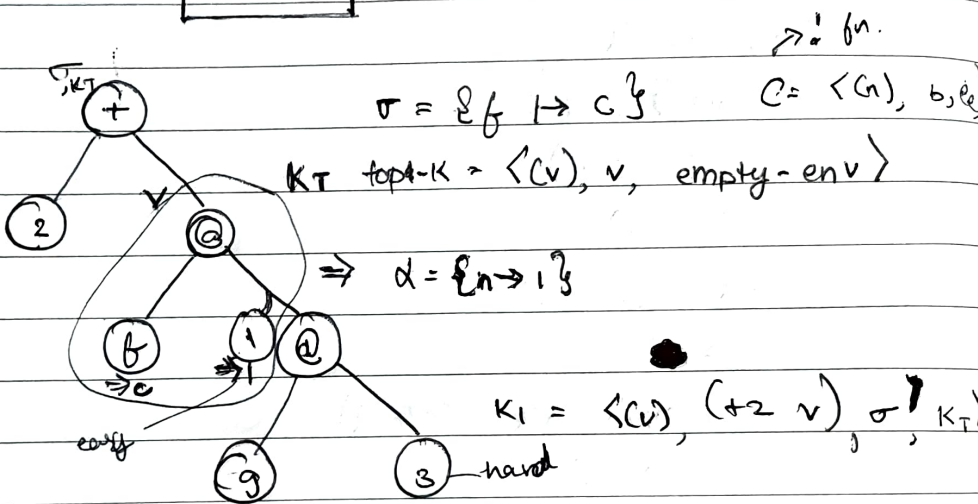 ! fn.
σ, KT
+
σ = {f ↦ c}
C = ⟨(n), b, e
KT top-k = ⟨(v), v, empty-env⟩
v
2
@
⇒ α = {n → 1}
f
1
@
⇒ c
⇒ 1
K1 = ⟨(v), (+2 v), σ, KT⟩
easy
g
3
hard